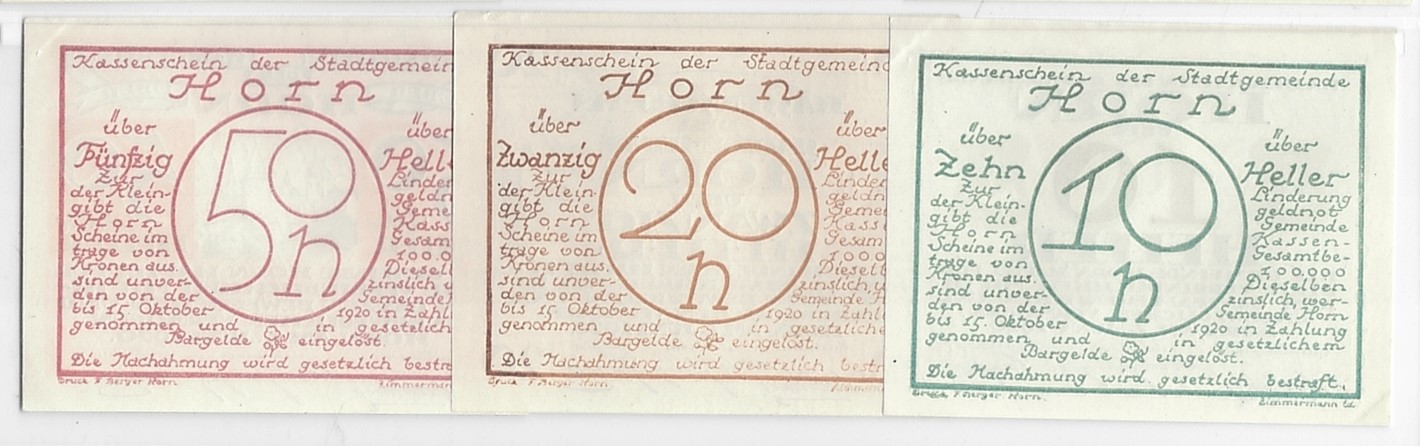 Kassenschein der Stadtgemein
Horn
über über
Fünfzig Hell
50
h
Zur Linder
der Klein- geldn
gibt die Geme
Horn Kass
Scheine im Gesam
trage von 100.0
Kronen aus. Diesell
sind unver- zinslich u
den von der Gemeinde
bis 15. Oktober 1920 in Zahl
genommen und in gesetzlich
Bargelde eingelöst.
Die Nachahmung wird gesetzlich bestr
Druck F. Berger Horn. Zimmermann
Kassenschein der Stadtgemeind
Horn
über über
Zwanzig Helle
20
h
Zur Linder
der Klein- geldn
gibt die Geme
Horn Kass
Scheine im Gesam
trage von 100.0
Kronen aus. Diesell
sind unver- zinslich, u
den von der Gemeinde H
bis 15. Oktober 1920 in Zahl
genommen und in gesetzliche
Bargelde eingelöst.
Die Nachahmung wird gesetzlich bestra
Druck F. Berger Horn.
Kassenschein der Stadtgemeinde
Horn
über über
Zehn Heller
10
h
Zur Linderung
der Klein- geldnot
gibt die Gemeinde
Horn Kassen-
Scheine im Gesamtbe-
trage von 100.000
Kronen aus. Dieselben
sind unver- zinslich, wer-
den von der Gemeinde Horn
bis 15. Oktober 1920 in Zahlung
genommen und in gesetzlichem
Bargelde eingelöst.
Die Nachahmung wird gesetzlich bestraft.
Druck F. Berger Horn. Zimmermann